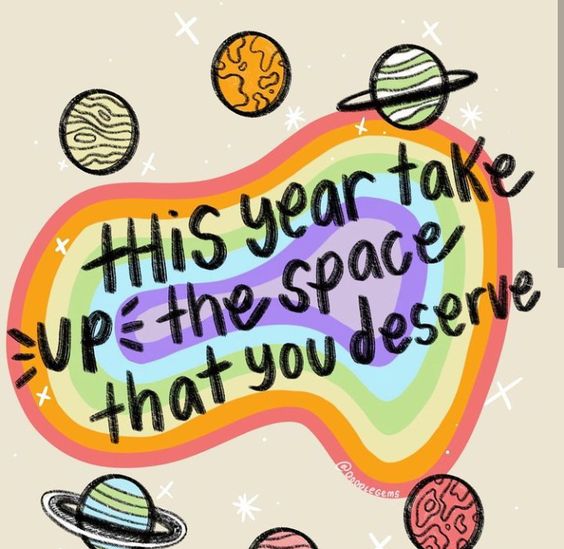 this year take
up the space
that you deserve
@doodlegems